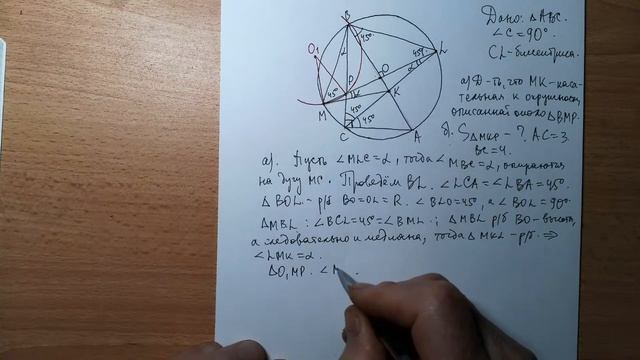 Дано: △ABC.
∠C=90°.
CL-биссектриса.
а) Д-ть, что MK-каса-
тельная к окружности,
описанной около △BMP.
б) S△MKP - ? AC=3
BC=4.
B
O₁
45°
45°
L
α
O
α
P
45°
α
K
M
45°
45°
C
A
а). Пусть ∠MLC=α, тогда ∠MBC=α, опираются
на дугу MC. Проведём BL. ∠LCA=∠LBA=45°.
△BOL - р/б BO=OL=R. ∠BLO=45°, а ∠BOL=90°.
△MBL: ∠BCL=45°=∠BML; △MBL р/б BO-высота,
а следовательно и медиана, тогда △MKL-р/б. ⇒
∠LMK=α.
△O₁MP. ∠M